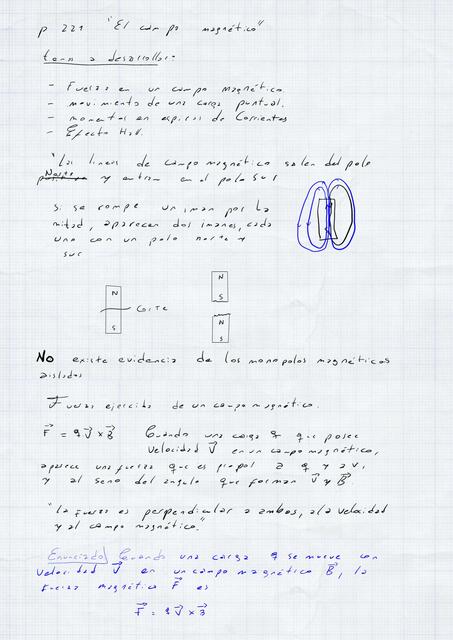 p 221 "El campo magnético"
tema a desarrollar:
- Fuerzas en un campo magnético.
- movimiento de una carga puntual.
- momentos en espiras de Corrientes
- Efecto Hall.
"Las lineas de campo magnético salen del polo
Norte y entran en el polo Sur
Si se rompe un iman por la
mitad, aparecen dos imanes, cada
uno con un polo norte y
sur
N
S
Corte
N
S
N
S
No existe evidencia de los monopolos magnéticos
aislados
Fuerza ejercida de un campo magnético.
F⃗ = q V⃗ × B⃗ Cuando una carga q que posee
velocidad V⃗ en un campo magnético,
aparece una fuerza que es propol a q y a v,
y al seno del angulo que forman V⃗ y B⃗
"la fuerza es perpendicular a ambos, a la velocidad
y al campo magnético."
Enunciado Cuando una carga q se mueve con
velocidad V⃗ en un campo magnético B⃗, la
fuerza magnética F⃗ es
F⃗ = q V⃗ × B⃗